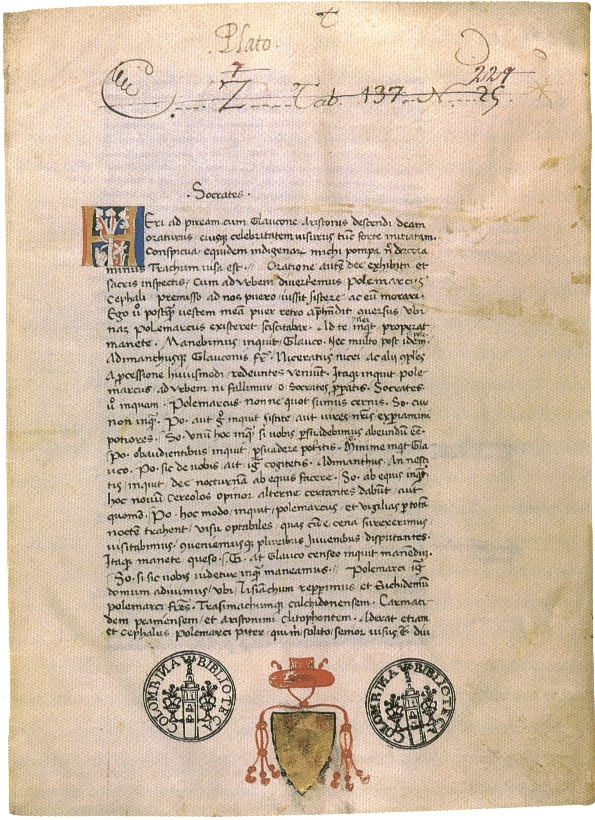 Plato.
7
Z Tab. 137. N. 25
229
·Socrates·
HEri ad piream cum Glaucone Aristonis descendi deam
oraturus eiusque celebritatem uisurus tunc forte initiatam.
Conspicua equidem indigenarum michi pompa
minus Trachum uisa est. Oratione autem dec exhibita et
sacris inspectis, Cum ad urbem diuerteremus Polemarcus
Cephali premisso ad nos puero iussit sistere ac eum morari.
Ego uero postquam uestem meam puer retro aprehendit quersus ubi
nam Polemarcus existeret sciscitabar. Ad te inquit properat
manete. Manebimus inquit Glauco. Nec multo post idem
Adimanthusque Glauconis frater. Niceratus nicei ac alii
a processione huiusmodi redeuntes veniunt. Itaque inquit Pole
marcus ad urbem ni fallimur o Socrates properatis. Socrates
uero inquam. Polemarcus. nonne quot sumus cernis. So. cur
non inquam. Po. aut igitur inquit sistite aut uires nostras experiamini
potiores. So. unum hoc inquam si uobis persuadebimus abeundum esse.
Po. obaudientibus inquit persuadere potestis. Minime inquit Gla
uco. Po. sic de uobis ait igitur cogitetis. Adimanthus. An nesci
tis inquit dec nocturna ab equis facere. So. ab equis inquam
hoc nouum cereolos opinor alterne certantes dabunt aut
quomodo. Po. hoc modo inquit polemarcus et uigilias per totam
noctem trahent uisu optabiles, quas cum e cena surexerimus
uisitabimus, queniemusque pluribus iuuenibus disputantes.
Itaque manete queso. G. at Glauco censeo inquit manendum.
So. si sic uobis uidetur inquam maneamus. // Polemarci igitur
domum adiuimus, ubi Lisiachum repperimus et Euthidemum
polemarci fratres. Trasimachumque calchidonensem. Carmaci
dem pramensem et aristonimi clitophontem. Aderat etiam
et Cephalus Polemarci pater, qui michi solito senior uisus est diu
COLOMBINA BIBLIOTECA
COLOMBINA BIBLIOTECA